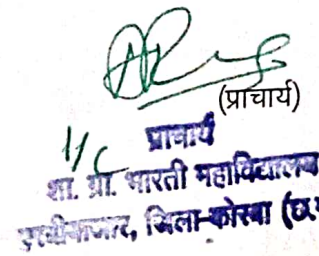 (प्राचार्य)
I/C
प्राचार्य
शा. ग्रा. भारती महाविद्यालय
जिला-कोरबा (छ.ग